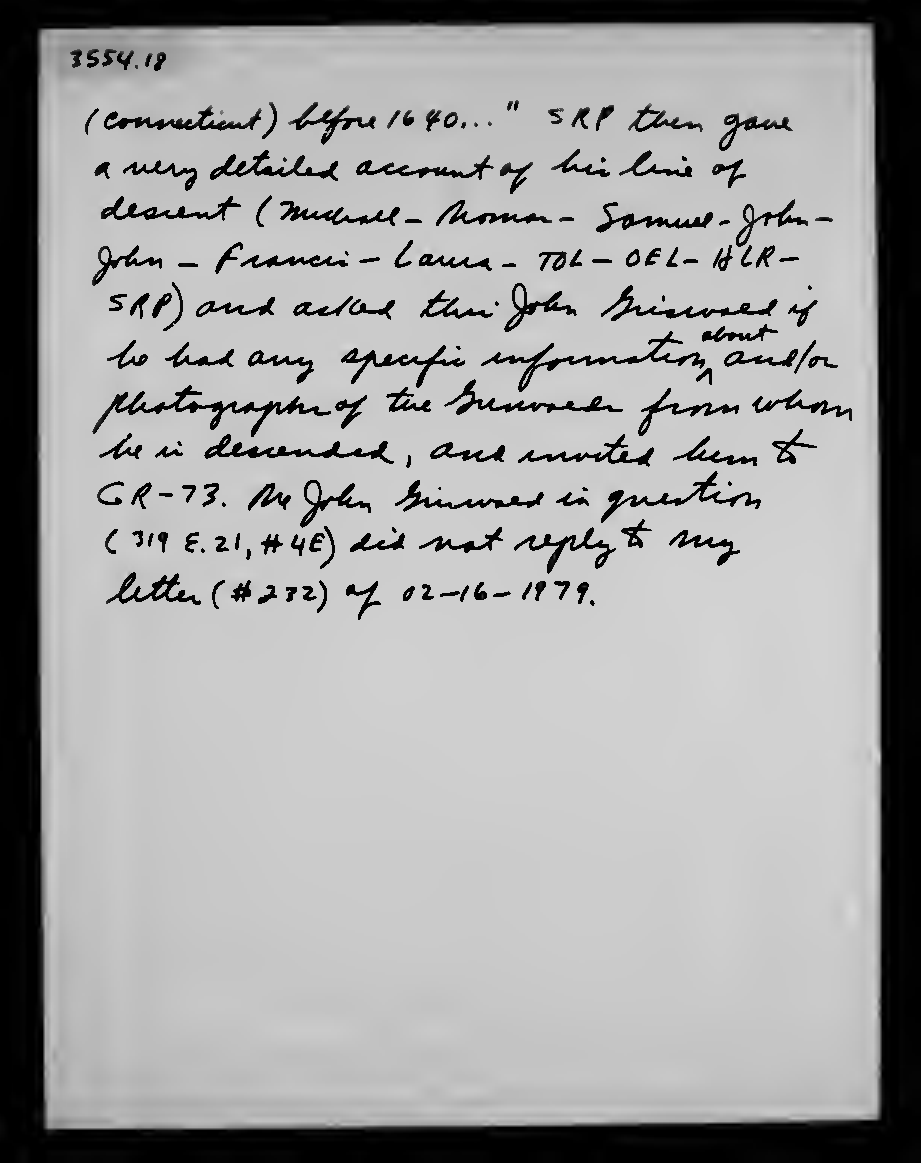 3554.18
(Connecticut) before 1640..." SRP then gave
a very detailed account of his line of
descent (Michael - Thomas - Samuel - John -
John - Francis - Laura - TOL - OEL - HLR -
SRP) and asked this John Griswold if
he had any specific information about and/or
photographs of the Griswolds from whom
he is descended, and invited him to
GR-73. The John Griswold in question
(319 E. 21, #4E) did not reply to my
letter (#232) of 02-16-1979.